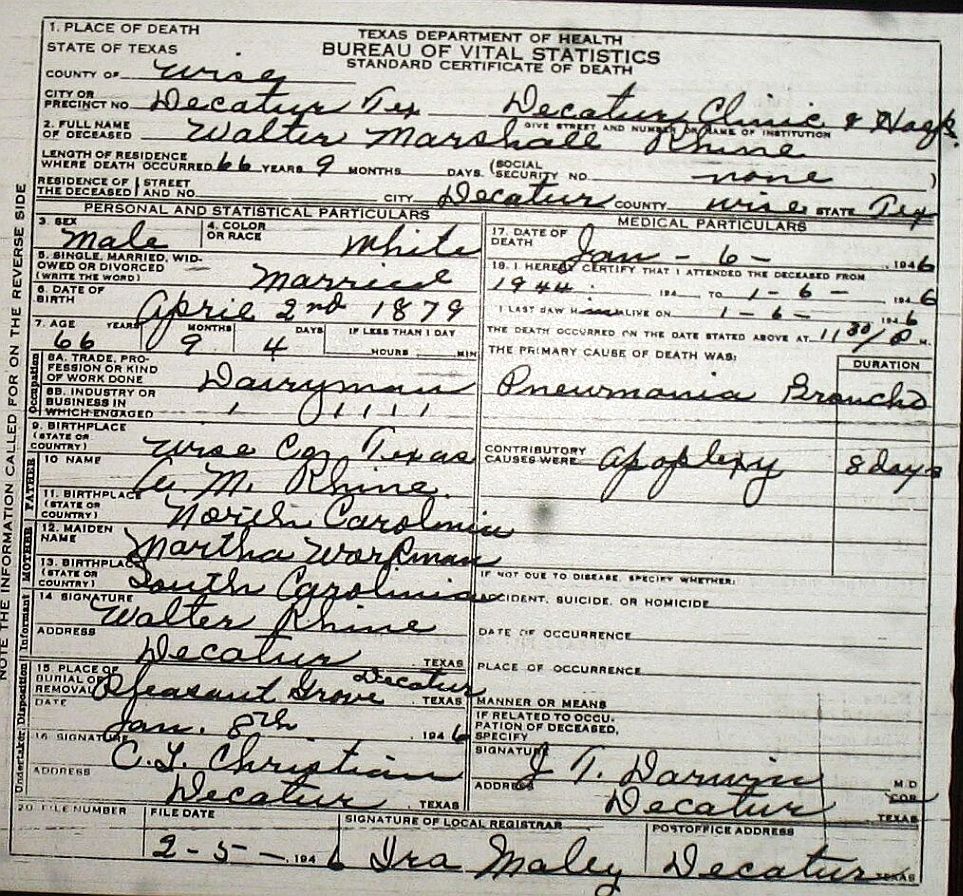 NOTE THE INFORMATION CALLED FOR ON THE REVERSE SIDE
TEXAS DEPARTMENT OF HEALTH
BUREAU OF VITAL STATISTICS
STANDARD CERTIFICATE OF DEATH
1. PLACE OF DEATH
STATE OF TEXAS
COUNTY OF Wise
CITY OR PRECINCT NO. Decatur Tex Decatur Clinic & Hosp.
GIVE STREET AND NUMBER OR NAME OF INSTITUTION
2. FULL NAME OF DECEASED Walter Marshall Rhine
LENGTH OF RESIDENCE WHERE DEATH OCCURRED 66 YEARS 9 MONTHS DAYS. (SOCIAL SECURITY NO. none )
RESIDENCE OF THE DECEASED STREET AND NO. CITY Decatur COUNTY Wise STATE Tex
PERSONAL AND STATISTICAL PARTICULARS
3. SEX Male
4. COLOR OR RACE White
5. SINGLE, MARRIED, WIDOWED OR DIVORCED (WRITE THE WORD) Married
6. DATE OF BIRTH April 2nd 1879
7. AGE YEARS 66 MONTHS 9 DAYS 4 IF LESS THAN 1 DAY HOURS MIN
Occupation
8A. TRADE, PROFESSION OR KIND OF WORK DONE Dairyman
8B. INDUSTRY OR BUSINESS IN WHICH ENGAGED
9. BIRTHPLACE (STATE OR COUNTRY) Wise Co, Texas
FATHER
10 NAME M. Rhine
11. BIRTHPLACE (STATE OR COUNTRY) North Carolinia
MOTHER
12. MAIDEN NAME Martha Workman
13. BIRTHPLACE (STATE OR COUNTRY) South Carolinia
Informant
14 SIGNATURE Walter Rhine
ADDRESS Decatur TEXAS
Disposition
15. PLACE OF BURIAL OR REMOVAL Pleasant Grove Decatur TEXAS
DATE Jan. 8th 1946
Undertaker
16 SIGNATURE C. L. Christian
ADDRESS Decatur TEXAS
MEDICAL PARTICULARS
17. DATE OF DEATH Jan - 6 - 1946
18. I HEREBY CERTIFY THAT I ATTENDED THE DECEASED FROM
1944 194 TO 1-6- 1946
I LAST SAW him ALIVE ON 1-6- 1946
THE DEATH OCCURRED ON THE DATE STATED ABOVE AT 11 30/P M.
THE PRIMARY CAUSE OF DEATH WAS: DURATION
Pneumonia Broncho
CONTRIBUTORY CAUSES WERE Apoplexy 8 days
IF NOT DUE TO DISEASE, SPECIFY WHETHER:
ACCIDENT, SUICIDE, OR HOMICIDE
DATE OF OCCURRENCE
PLACE OF OCCURRENCE
MANNER OR MEANS
IF RELATED TO OCCUPATION OF DECEASED, SPECIFY
SIGNATURE J. T. Darwin M.D.
ADDRESS Decatur TEXAS
20. FILE NUMBER
FILE DATE 2-5-1946
SIGNATURE OF LOCAL REGISTRAR Ira Maley
POSTOFFICE ADDRESS Decatur TEXAS